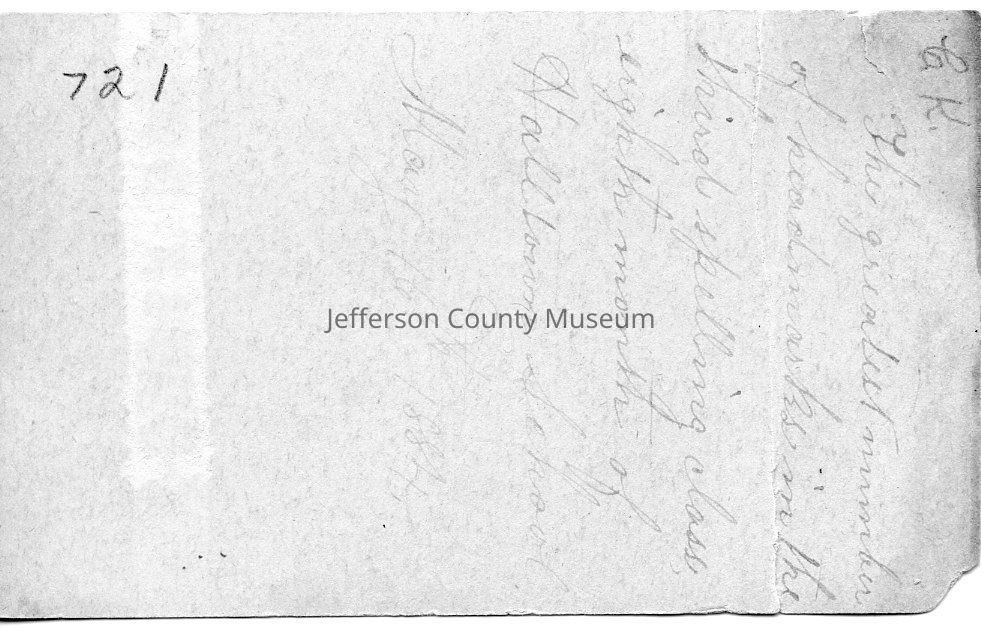 C. K.
The greatest number
of headmarks in the
third spelling class,
eighth month of
Halltown School
May 1884
721
Jefferson County Museum